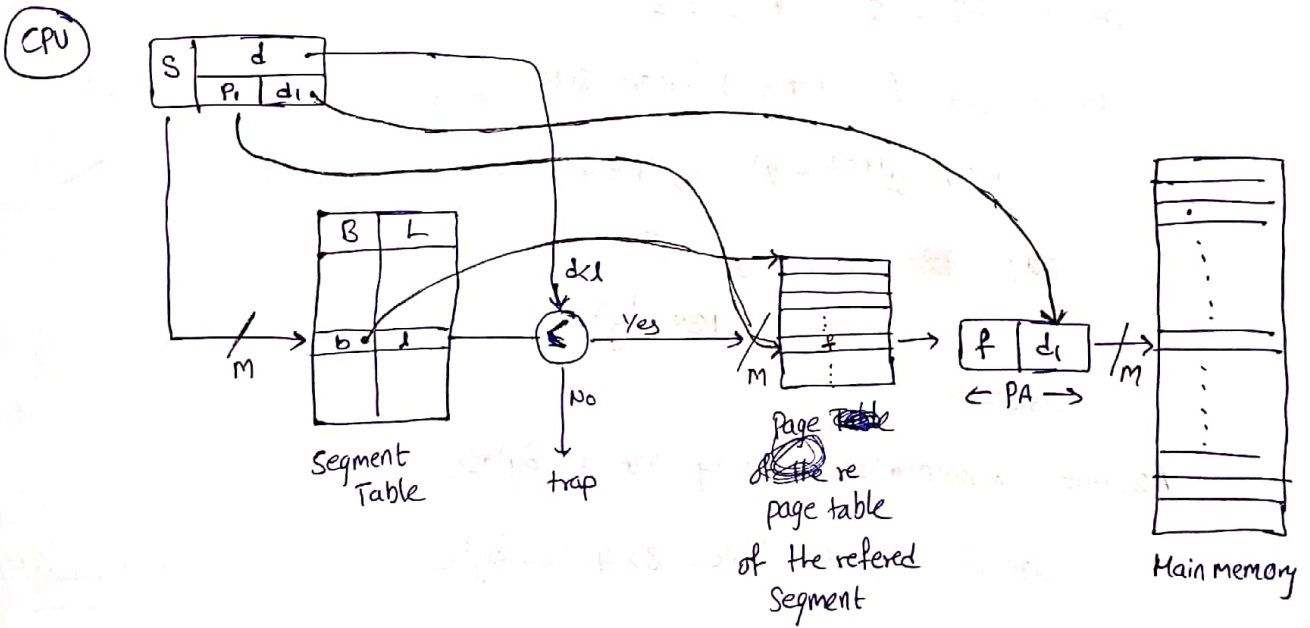 CPU
S d
P1 d1
B L
d<l
b l
<
Yes
No
trap
M
Segment
Table
M
f
Page
re
page table
of the refered
Segment
f d1
← PA →
M
Main memory